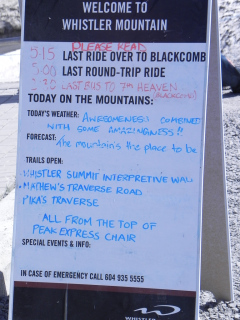 WELCOME TO
WHISTLER MOUNTAIN
PLEASE READ
5:15 LAST RIDE OVER TO BLACKCOMB
5:00 LAST ROUND-TRIP RIDE
LAST BUS TO 7th HEAVEN
(BLACKCOMB)
TODAY ON THE MOUNTAINS:
TODAY'S WEATHER: AWESOMENESS COMBINED
WITH SOME AMAZINGNESS!!
FORECAST: The mountain's the place to be
TRAILS OPEN:
WHISTLER SUMMIT INTERPRETIVE WALK
MATHEW'S TRAVERSE ROAD
PIKA'S TRAVERSE
ALL FROM THE TOP OF
PEAK EXPRESS CHAIR
SPECIAL EVENTS & INFO:
IN CASE OF EMERGENCY CALL 604 935 5555
WHISTLER